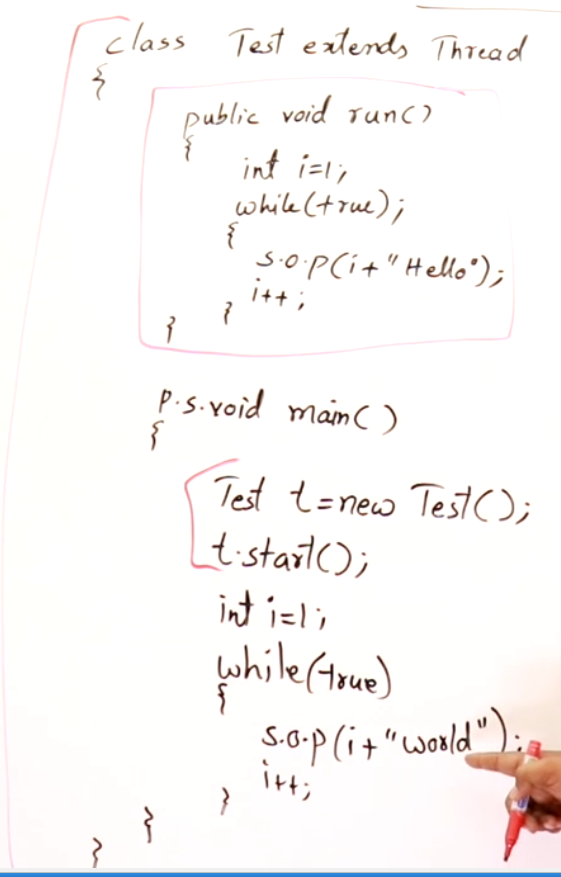 class Test extends Thread
{
public void run()
{
int i=1;
while(true);
{
s.o.p(i+"Hello");
i++;
}
}
p.s.void main()
{
Test t=new Test();
t.start();
int i=1;
while(true)
{
s.o.p(i+"world");
i++;
}
}
}